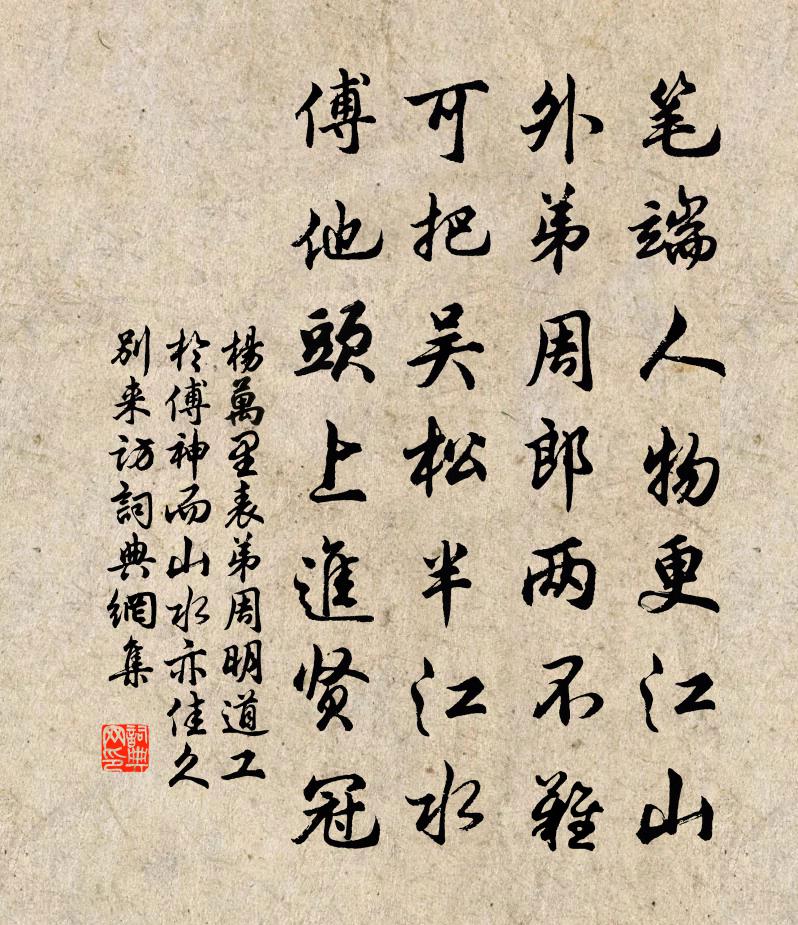 笔端人物更江山
外弟周郎两不難
可把吴松半江水
傅他頭上進贤冠
楊萬里表弟周明道工
於傅神而山水亦佳久
别来访詞典網集
詞典网印